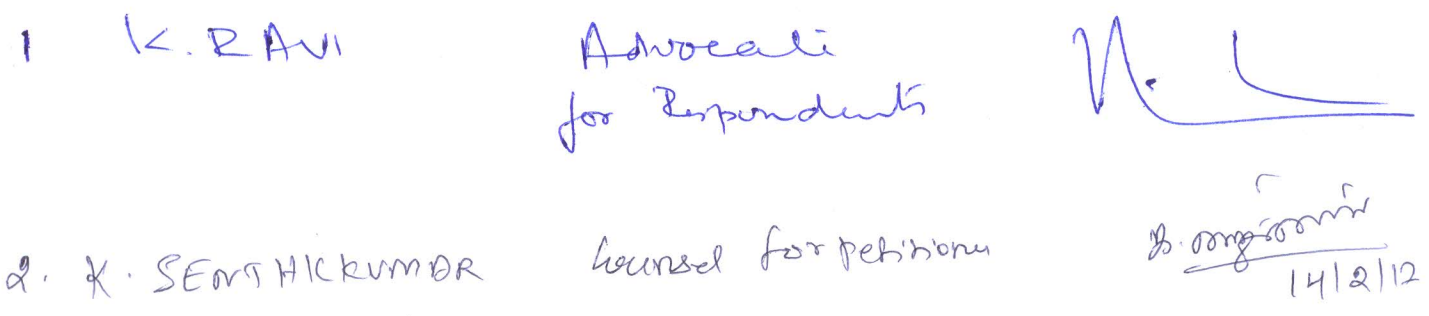 1 K. RAVI Advocate
for Respondents
2. K. SENTHILKUMAR Counsel for petitioner
14/2/12